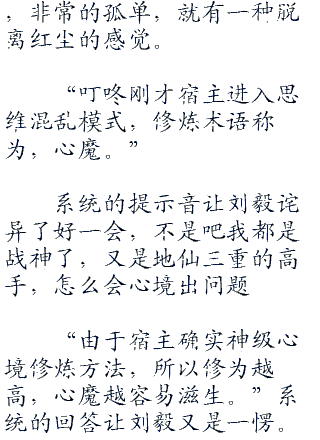 ，非常的孤单，就有一种脱
离红尘的感觉。
“叮咚刚才宿主进入思
维混乱模式，修炼术语称
为，心魔。”
系统的提示音让刘毅诧
异了好一会，不是吧我都是
战神了，又是地仙三重的高
手，怎么会心境出问题
“由于宿主确实神级心
境修炼方法，所以修为越
高，心魔越容易滋生。”系
统的回答让刘毅又是一愣。